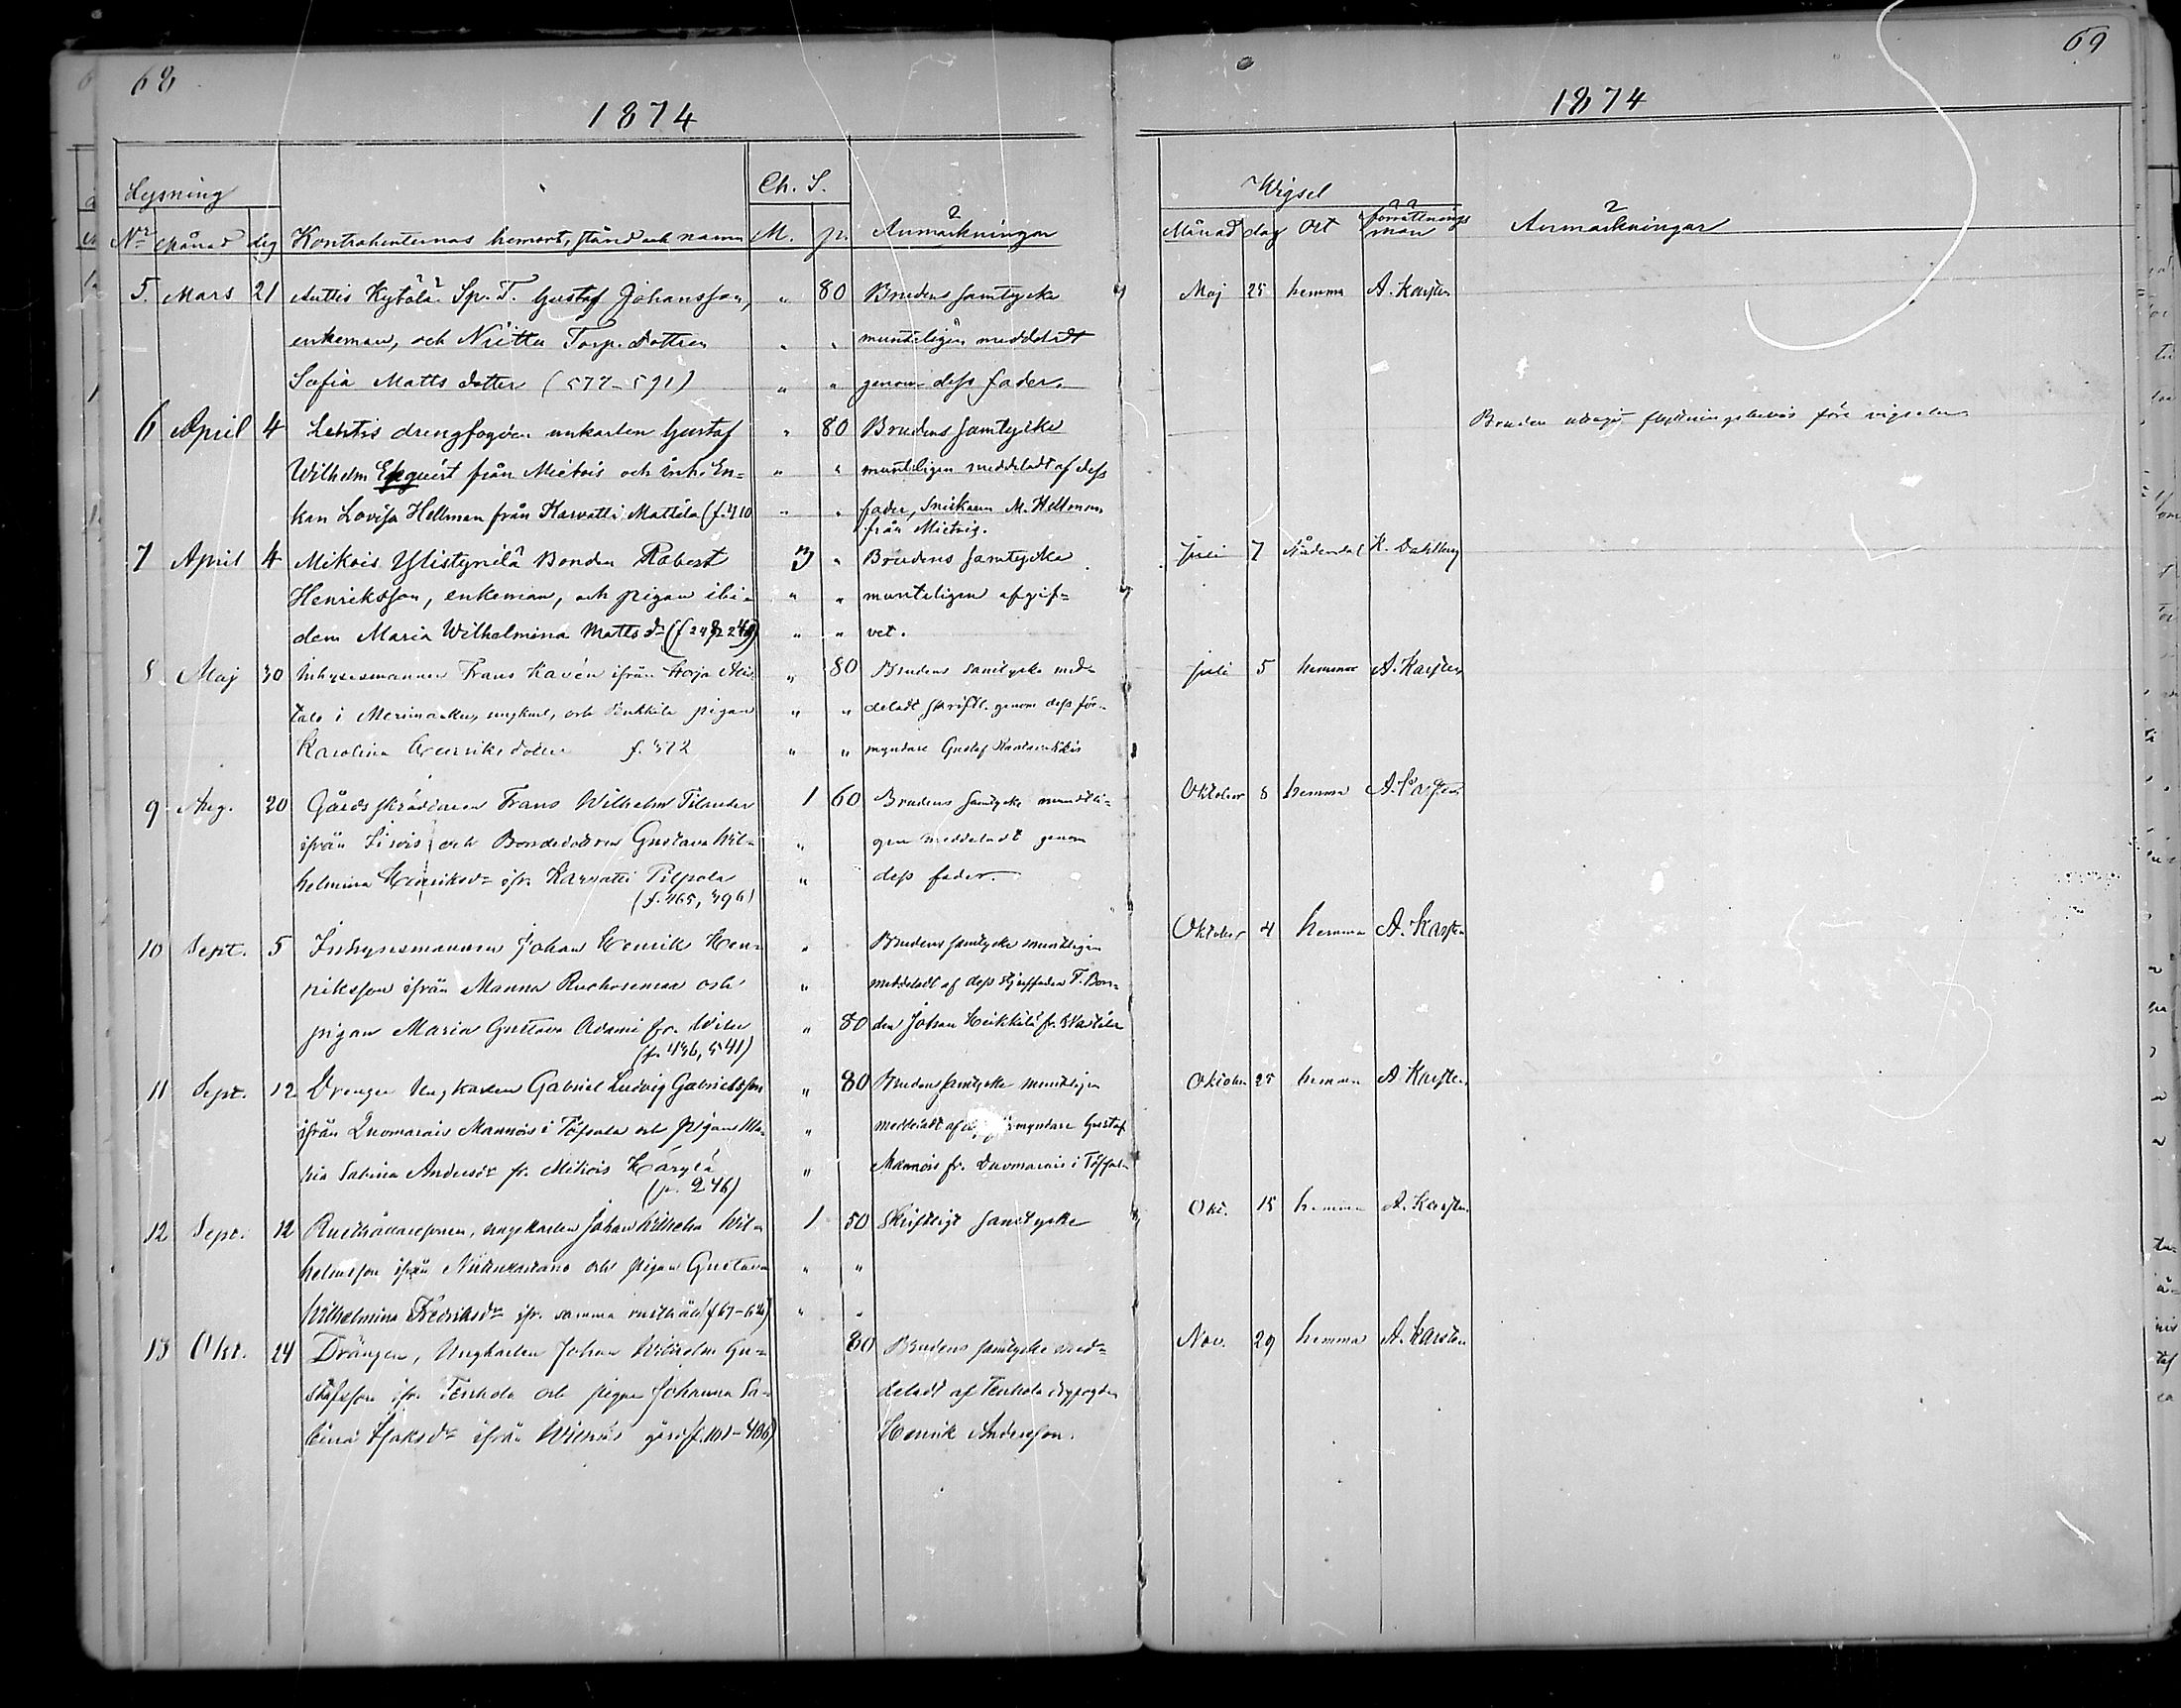 68
1874
Lysning
Ch. S.
Nr Månad dag Kontrahenternas hemort, stånd och namn M. p. Anmärkningar
5. Mars 21 Anttis Kytölä Sp. T. Gustaf Johansson, " 80 Brudens samtycke
enkeman, och Niittu Torp. dottren " " muntligen meddeladt
Sofia Matts dotter (577-591) " " genom dess fader.
6 April 4 Lehtis drengfogden unkarlen Gustaf " 80 Brudens samtycke
Wilhelm från Mietois och inh. En- " " muntligen meddeladt af dess
kan Lovisa Hellman från Karvatti Mattila (f. 410 " " fader, Snickaren M. Hellman
från Mietois.
7 April 4 Mikois Ylistyrilä Bonden Robert 3 " Brudens samtycke
Henriksson, enkeman, och pigan ibi- " " muntligen afgif-
dem Maria Wilhelmina Matts dr " " vet.
8 Maj 30 Inhysesmannen Frans Kavén ifrån " 80 Brudens samtycke med-
talo i Merimasku, ungkarl, och pigan " " deladt skriftl. genom dess för-
Karolina Henriksdotter f. 372 " " myndare Gustaf
9 Aug. 20 Gårdsskräddaren Frans Wilhelm Tilander 1 60 Brudens samtycke muntli-
ifrån och Bondedottren Gustava Wil- " gen meddeladt genom
helmina Henriksdr ifr. Karvatti Pilpala " dess fader.
(f. 465, 396)
10 Sept. 5 Inhysesmannen Johan Henrik Hen- " Brudens samtycke muntligen
riksson ifrån Manna och " meddeladt af dess styffader F. Bon-
pigan Maria Gustava Adami fr. " 80 den Johan Heikkilä fr.
(p. 436, 541)
11 Sept. 12 Drengen Ungkarlen Gabriel Ludvig Gabrielsson " 80 Brudens samtycke muntligen
ifrån Luomarais Mannois i Töfsala och pigan Ma- " meddeladt af myndare Gustaf
ria Sabina Andersdr fr. Mikois Käryla " Mannois fr. Luomarais i Töfsala
(p. 246)
12 Sept. 12 Rusthållaresonen, ungkarlen Johan Wilhelm Wil- 1 50 Skriftligt samtycke
helmsson ifrån och pigan Gustava " "
Wilhelmina Fredriksdr ifr. samma rusthåll " "
13 Okt. 24 Drängen, Ungkarlen Johan Wilhelm Gu- 80 Brudens samtycke med-
stafsson ifr. Tenhola och pigan Johanna Sa- deladt af Tenhola
bina Isaksdr ifrån Wilnäs gård (f. 101-406) Henrik Andersson.
69
1874
Wigsel
Månad dag Ort förrättningsman Anmärkningar
Maj 25 hemma A. Karsten
Bruden uttagit flyttningsbevis före vigseln
Juli 7 Nådendal K. Dahlberg
Juli 5 hemma A. Karsten
Oktober 8 hemma A. Karsten
Oktober 4 hemma A. Karsten
Oktober 25 hemma A. Karsten
Okt. 15 hemma A. Karsten
Nov. 29 hemma A. Karsten